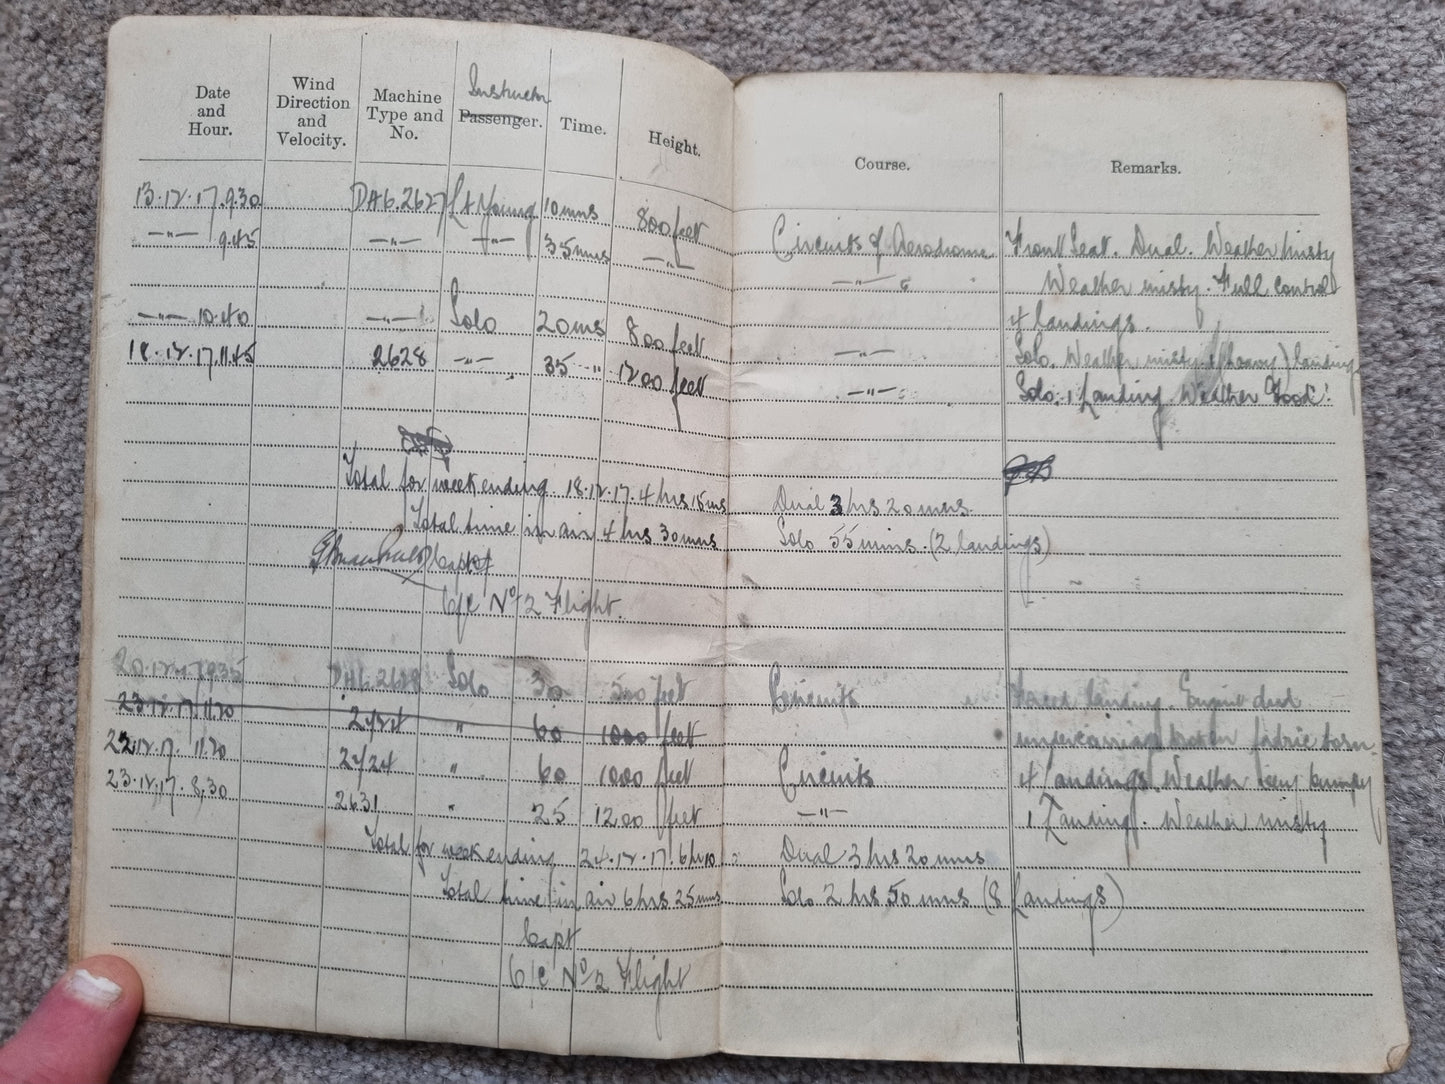 Date and Hour. Wind Direction and Velocity. Machine Type and No. Instructor Passenger. Time. Height. Course. Remarks.
13.12.17.9.30 DH6.2627 Lt Young 10 mns 800 feet Circuits of Aerodrome Front Seat. Dual. Weather misty
—"— 9.45 —"— —"— 35 mns —"— —"— Weather misty. Full control
4 landings.
—"— 10.40 —"— Solo 20 ms 800 feet —"— Solo. Weather misty landing
18.12.17.11.45 2628 —"— 35 —"— 1200 feet —"— Solo. 1 Landing. Weather Good.
Total for week ending 18.12.17. 4 hrs 15 ms Dual 3 hrs 20 mns.
Total time in air 4 hrs 30 mns Solo 55 mins. (2 landings)
Capt
O/C No 2 Flight.
20.12.17 9.35 DH6.2629 Solo 30 500 feet Circuits Forced landing. Engine dud
undercarriage broken fabric torn.
23.12.17.11.20 2424 " 60 1000 feet
22.12.17. 11.20 2424 " 60 1000 feet Circuits 4 Landings. Weather very bumpy
23.12.17. 8.30 2631 " 25 1200 feet —"— 1 Landing. Weather misty
Total for week ending 24.12.17. 6 hrs 10 Dual 3 hrs 20 mns
Total time in air 6 hrs 25 mns Solo 2 hrs 50 mns (8 Landings)
Capt
O/C No 2 Flight